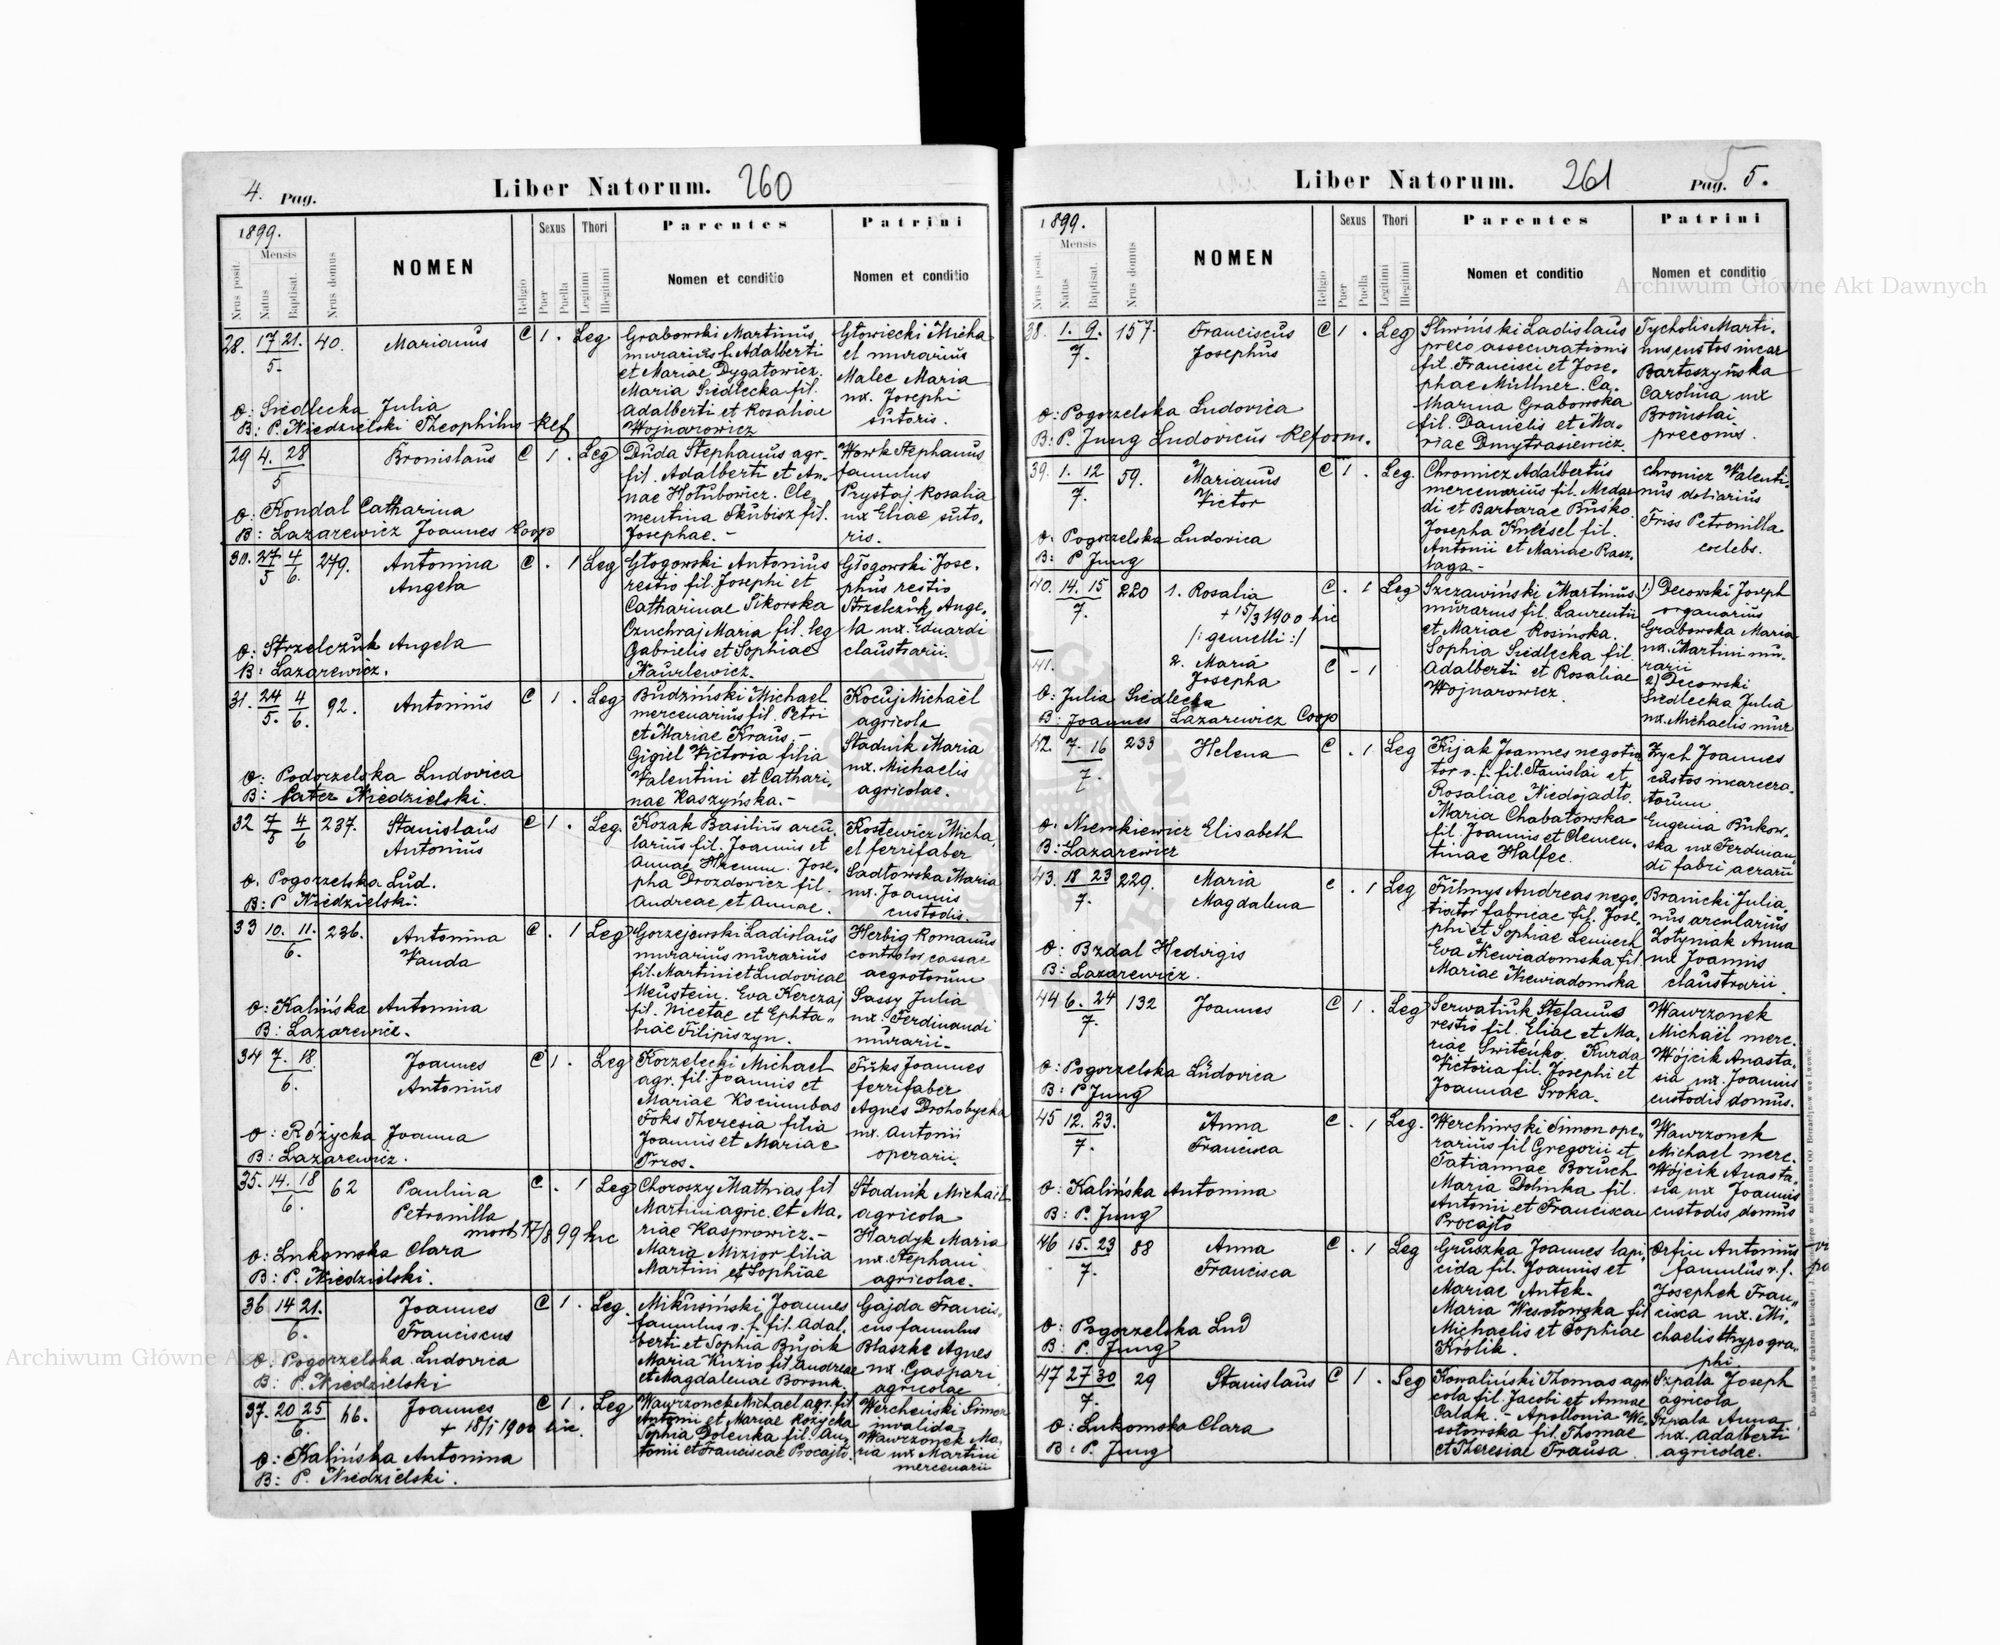 4. Pag.
Liber Natorum. 260
1899.
Mensis
Nrus posit.
Natus
Baptisat.
Nrus domus
NOMEN
Religio
Sexus
Puer
Puella
Thori
Legitimi
Illegitimi
Parentes
Nomen et conditio
Patrini
Nomen et conditio
28. 17 21. 40. Marianus C 1 . Leg
5.
Grabowski Martinus
murarius f. Adalberti
et Mariae Dygatowicz.
Maria Siedlecka fil.
Adalberti et Rosaliae
Wojnarowicz
Głowiecki Micha
el murarius
Malec Maria
ux. Josephi
sutoris.
O: Siedlecka Julia
B: P. Niedzielski Theophilus Ref
29 4. 28 Bronislaus C 1 . Leg
5
Duda Stephanus agr.
fil. Adalberti et An-
nae Hołubowicz. Cle-
mentina Skubisz fil.
Josephae. -
Work Stephanus
famulus
Prystaj Rosalia
ux Eliae suto-
ris.
O: Kondal Catharina
B: Lazarewicz Joannes Coop
30. 27 4 279. Antonina C . 1 Leg
5 6. Angela
Głogowski Antonius
restio fil. Josephi et
Catharinae Sikorska
Czuchraj Maria fil. leg
Gabrielis et Sophiae
Głogowski Jose-
phus restio
Strzelczuk Ange-
la ux. Eduardi
claustrarii.
O: Strzelczuk Angela
B: Lazarewicz.
31. 24 4 92. Antonius C 1 . Leg
5. 6.
Budziński Michael
mercenarius fil. Petri
et Mariae Kraus. -
Gigiel Victoria filia
Valentini et Cathari-
nae Kaszyńska. -
Kocuj Michaël
agricola
Stadnik Maria
ux. Michaelis
agricolae.
O: Podorzelska Ludovica
B: Pater Niedzielski.
32 7 4 237. Stanislaus C 1 . Leg.
5 6 Antonius
Kozak Basilius arcu-
larius fil. Joannis et
Annae. Jose-
pha Drozdowicz fil.
Andreae et Annae.
Kostewicz Micha
el ferrifaber
Sadłowska Maria
ux. Joannis
custodis.
O. Pogorzelska Lud.
B: P Niedzielski.
33 10. 11. 236. Antonina C . 1 Leg
6. Vanda
Gorzejowski Ladislaus
murarius murarius
fil. Martini et Ludovicae
Meustein. Eva Kerczaj
fil. Nicetae et Ephta-
biae Filipiszyn.
Herbig Romanus
contolor cassae
aegrotorum
Sassy Julia
ux. Ferdinandi
murarii.
O: Kalińska Antonina
B: Lazarewicz.
34 7. 18 Joannes C 1 . Leg
6. Antonius
Korzelecki Michael
agr. fil. Joannis et
Mariae
Foks Theresia filia
Joannis et Mariae
Trzos.
Fuks Joannes
ferrifaber
Agnes Drohobycka
ux. Antonii
operarii.
O: Różycka Joanna
B: Lazarewicz.
35. 14. 18 62 Paulina C . 1 Leg
6. Petronilla
mort 17/8 99 hic
Choroszy Mathias fil
Martini agric. et Ma-
riae Kasprowicz. -
Maria Mizior filia
Martini et Sophiae
Stadnik Michaël
agricola
Hardyk Maria
ux. Stephani
agricolae.
O: Lukomska Clara
B: P. Niedzielski.
36 14 21. Joannes C 1 . Leg.
6. Franciscus
Mikusiński Joannes
famulus v. f. fil. Adal-
berti et Sophia Bujak
Maria Kuzio fil. Andreae
et Magdalenae Borsuk.
Gajda Francis-
cus famulus
Błaszke Agnes
ux. Gaspari
agricolae
O: Pogorzelska Ludovica
B: P. Niedzielski
37. 20 25 66. Joannes C 1 . Leg
6. + 18/1 1900 hic.
Wawrzonek Michael agr. fil
Antonii et Mariae Rożycka
Sophia Dolenka fil. An-
tonii et Franciscae Procajło.
Wercheński Simon
invalida
Wawrzonek Ma-
ria ux Martini
mercenarii
O: Kalińska Antonina
B: P. Niedzielski.
Liber Natorum. 261
Pag. 5.
1899.
Mensis
Nrus posit.
Natus
Baptisat.
Nrus domus
NOMEN
Religio
Sexus
Puer
Puella
Thori
Legitimi
Illegitimi
Parentes
Nomen et conditio
Patrini
Nomen et conditio
38. 1. 9. 157. Franciscus C 1 . Leg
7. Josephus
Śliwiński Ladislaus
preco assecurationis
fil. Francisci et Jose-
phae Müllner. Ca-
tharina Grabowska
fil. Danielis et Ma-
riae Dmytrasiewicz.
Tycholis Marti-
nus custos incar
Bartoszyńska
Carolina ux
Bronislai
preconis.
O: Pogorzelska Ludovica
B: P. Jung Ludovicus Reform.
39. 1. 12 59. Marianus C 1 . Leg.
7. Victor
Chronicz Adalbertus
mercenarius fil. Medar
di et Barbarae Busko
Josepha Kniesel fil.
Antonii et Mariae Rasz-
laga. -
Chronicz Valenti-
nus doliarius
Friss Petronilla
coelebs.
O: Pogorzelska Ludovica
B: P Jung
40. 14. 15 220 1. Rosalia C . 1 Leg
7. + 15/3 1900 hic
/: gemelli :/
41. 2. Maria C - 1
Josepha
Szczawiński Martinus
murarius fil. Laurentii
et Mariae Rosińska.
Sophia Siedlecka fil.
Adalberti et Rosaliae
Wojnarowicz.
1) Decowski Joseph
organarius
Grabowska Maria
ux. Martini mu-
rarii
2) Decowski
Siedlecka Julia
ux. Michaelis mur
O: Julia Siedlecka
B: Joannes Lazarewicz Coop
42. 7. 16 233 Helena C . 1 Leg
7.
Kijak Joannes negotia
tor v. f. fil. Stanislai et
Rosaliae Niedojadło.
Maria Chabatowska
fil. Joannis et Clemen-
tinae Halfec.
Zych Joannes
custos incarcera-
torum
Eugenia Bukow-
ska ux Ferdinan-
di fabri aerarii
O: Niemkiewicz Elisabeth
B: Lazarewicz
43. 18 23 229. Maria C . 1 Leg
7. Magdalena
Fuhnys Andreas nego-
tiator fabricae fil. Jose-
phi et Sophiae
Eva Niewiadomska fil.
Mariae Niewiadomska
Branicki Julia
nus arcularius
Zotyniak Anna
ux Joannis
claustrarii.
O: Bzdal Hedvigis
B: Lazarewicz.
44 6. 24 132 Joannes C 1 . Leg
7.
Serwatiuk Stefanus
restio fil. Eliae et Ma-
riae Świteńko. Kurda
Victoria fil. Josephi et
Joannae Sroka.
Wawrzonek
Michaël merc.
Wójcik Anasta-
sia ux. Joannis
custodis domus.
O: Pogorzelska Ludovica
B: P Jung
45 12. 23. Anna C . 1 Leg.
7. Francisca
Werchiwski Simon ope-
rarius fil Gregorii et
Tatiannae Boruch
Maria Dolinka fil.
Antonii et Franciscae
Procajło
Wawrzonek
Michael merc.
Wójcik Anasta-
sia ux Joannis
custodis domus
O: Kalińska Antonina
B: P. Jung
46 15. 23 88 Anna C . 1 Leg
7. Francisca
Gruszka Joannes lapi
cida fil. Joannis et
Mariae Antek.
Maria Wesołowska fil
Michaelis et Sophiae
Królik.
Orfin Antonius
famulus v. f.
Josephek Fran-
cisca ux. Mi-
chaelis thypogra-
phi.
O: Pogorzelska Lud
B: P. Jung
47 27 30 29 Stanislaus C 1 . Leg
7.
Kowaliński Thomas agri
cola fil. Jacobi et Annae
Całak. - Apollonia We-
sołowska fil. Thomae
et Theresiae Frausa.
Szpala Joseph
agricola
Szpala Anna
ux. Adalberti
agricolae.
O: Lukomska Clara
B: P. Jung
Archiwum Główne Akt Dawnych
Archiwum Główne Akt Dawnych